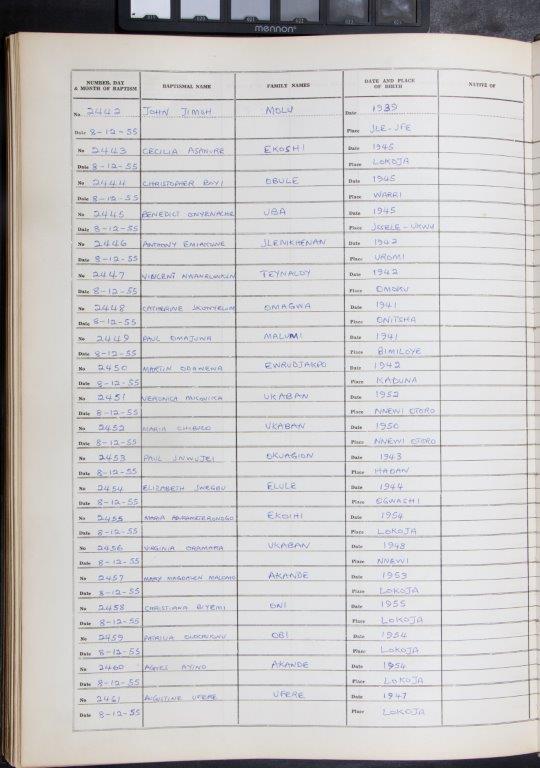 mennon
NUMBER, DAY & MONTH OF BAPTISM BAPTISMAL NAME FAMILY NAMES DATE AND PLACE OF BIRTH NATIVE OF
No. 2442 JOHN JIMOH MOLU Date 1939
Date 8-12-55 Place JLE-JFE
No 2443 CECILIA ASANURE EKOSHI Date 1945
Date 8-12-55 Place LOKOJA
No 2444 CHRISTOPHER BOYI OBULE Date 1945
Date 8-12-55 Place WARRI
No 2445 BENEDICT ONYENACHE UBA Date 1945
Date 8-12-55 Place JSSELE-UKWU
No 2446 ANTHONY JLENIKHENAN Date 1942
Date 8-12-55 Place UROMI
No 2447 VINCENT TEYNALDY Date 1942
Date 8-12-55 Place OMOKU
No 2448 CATHERINE OMAGWA Date 1941
Date 8-12-55 Place ONITSHA
No 2449 PAUL OMAJUWA MALUMI Date 1941
Date 8-12-55 Place BIMILOYE
No 2450 MARTIN ODAWENA EWRUDJAKPO Date 1942
Date 8-12-55 Place KADUNA
No 2451 VERONICA UKABAN Date 1952
Date 8-12-55 Place NNEWI OTORO
No 2452 MARIA UKABAN Date 1950
Date 8-12-55 Place NNEWI OTORO
No 2453 PAUL JNWUJEI OKUAGION Date 1943
Date 8-12-55 Place HADAN
No 2454 ELIZABETH JWEGBU ELULE Date 1944
Date 8-12-55 Place OGWASHI
No 2455 MARIA EKOIHI Date 1954
Date 8-12-55 Place LOKOJA
No 2456 VIRGINIA ORAMAPA UKABAN Date 1948
Date 8-12-55 Place NNEWI
No 2457 MARY MAGDALEN MALOMO AKANDE Date 1953
Date 8-12-55 Place LOKOJA
No 2458 CHRISTIANA BIYEMI ONI Date 1955
Date 8-12-55 Place LOKOJA
No 2459 OBI Date 1954
Date 8-12-55 Place LOKOJA
No 2460 AGNES AYINO AKANDE Date 1954
Date 8-12-55 Place LOKOJA
No 2461 AUGUSTINE UFERE UFERE Date 1947
Date 8-12-55 Place LOKOJA